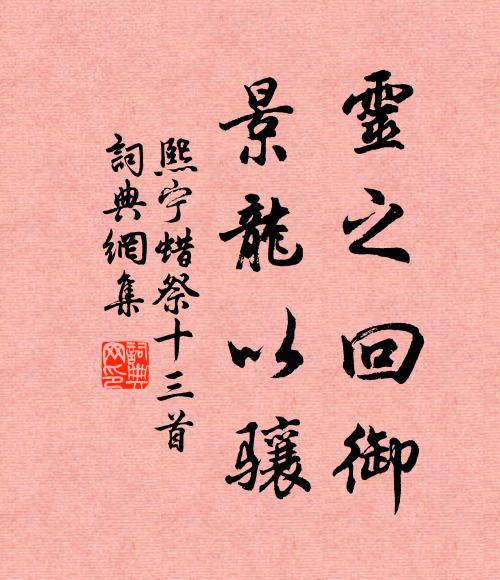 靈之回御
景龍以驤
熙宁蜡祭十三首
詞典網集
詞典
网印